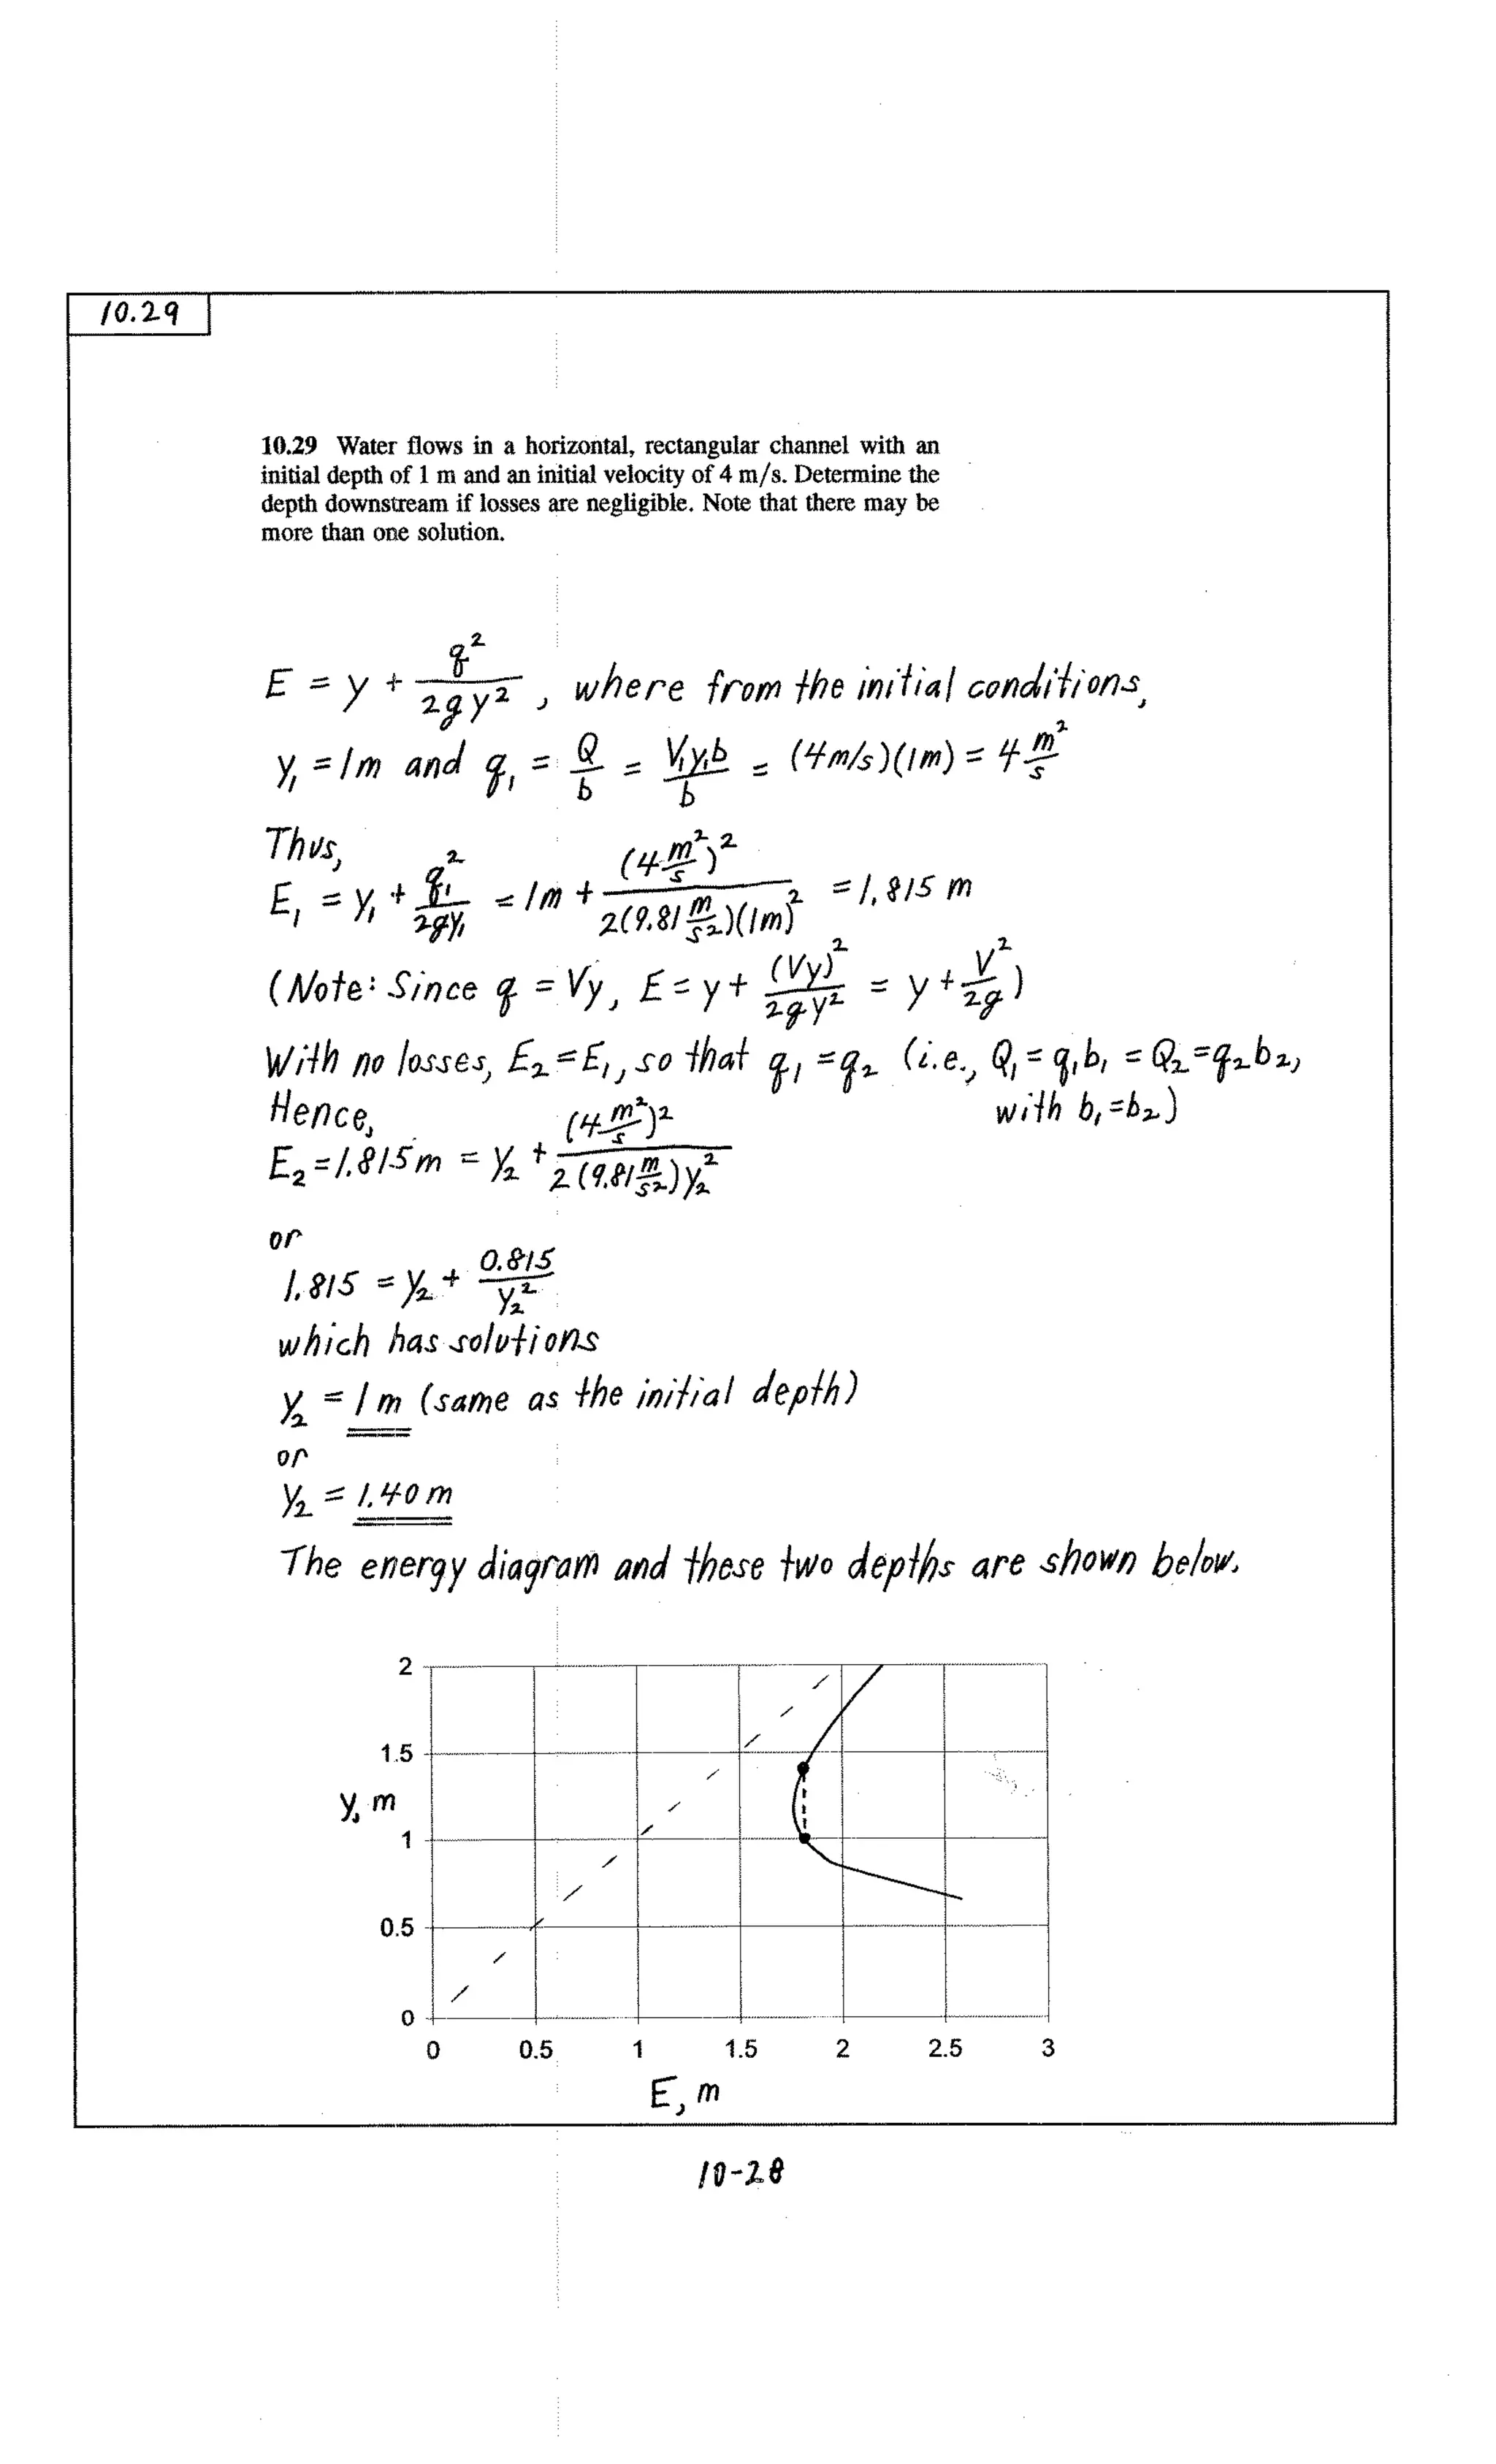 10.29
10.29 Water flows in a horizontal, rectangular channel with an
initial depth of 1 m and an initial velocity of 4 m/s. Determine the
depth downstream if losses are negligible. Note that there may be
more than one solution.
E = y + q²/2gy² , where from the initial conditions,
y₁ = 1m and q₁ = Q/b = V₁y₁b/b = (4m/s)(1m) = 4 m²/s
Thus,
E₁ = y₁ + q₁²/2gy₁ = 1m + (4 m²/s)²/2(9.81 m/s²)(1m)² = 1.815 m
(Note: Since q = Vy, E = y + (Vy)²/2gy² = y + V²/2g)
With no losses, E₂ = E₁, so that q₁ = q₂ (i.e., Q₁ = q₁b₁ = Q₂ = q₂b₂,
with b₁ = b₂)
Hence,
E₂ = 1.815m = y₂ + (4 m²/s)²/2(9.81 m/s²)y₂²
or
1.815 = y₂ + 0.815/y₂²
which has solutions
y₂ = 1 m (same as the initial depth)
or
y₂ = 1.40 m
The energy diagram and these two depths are shown below.
2
1.5
y, m
1
0.5
0
0 0.5 1 1.5 2 2.5 3
E, m
10-28